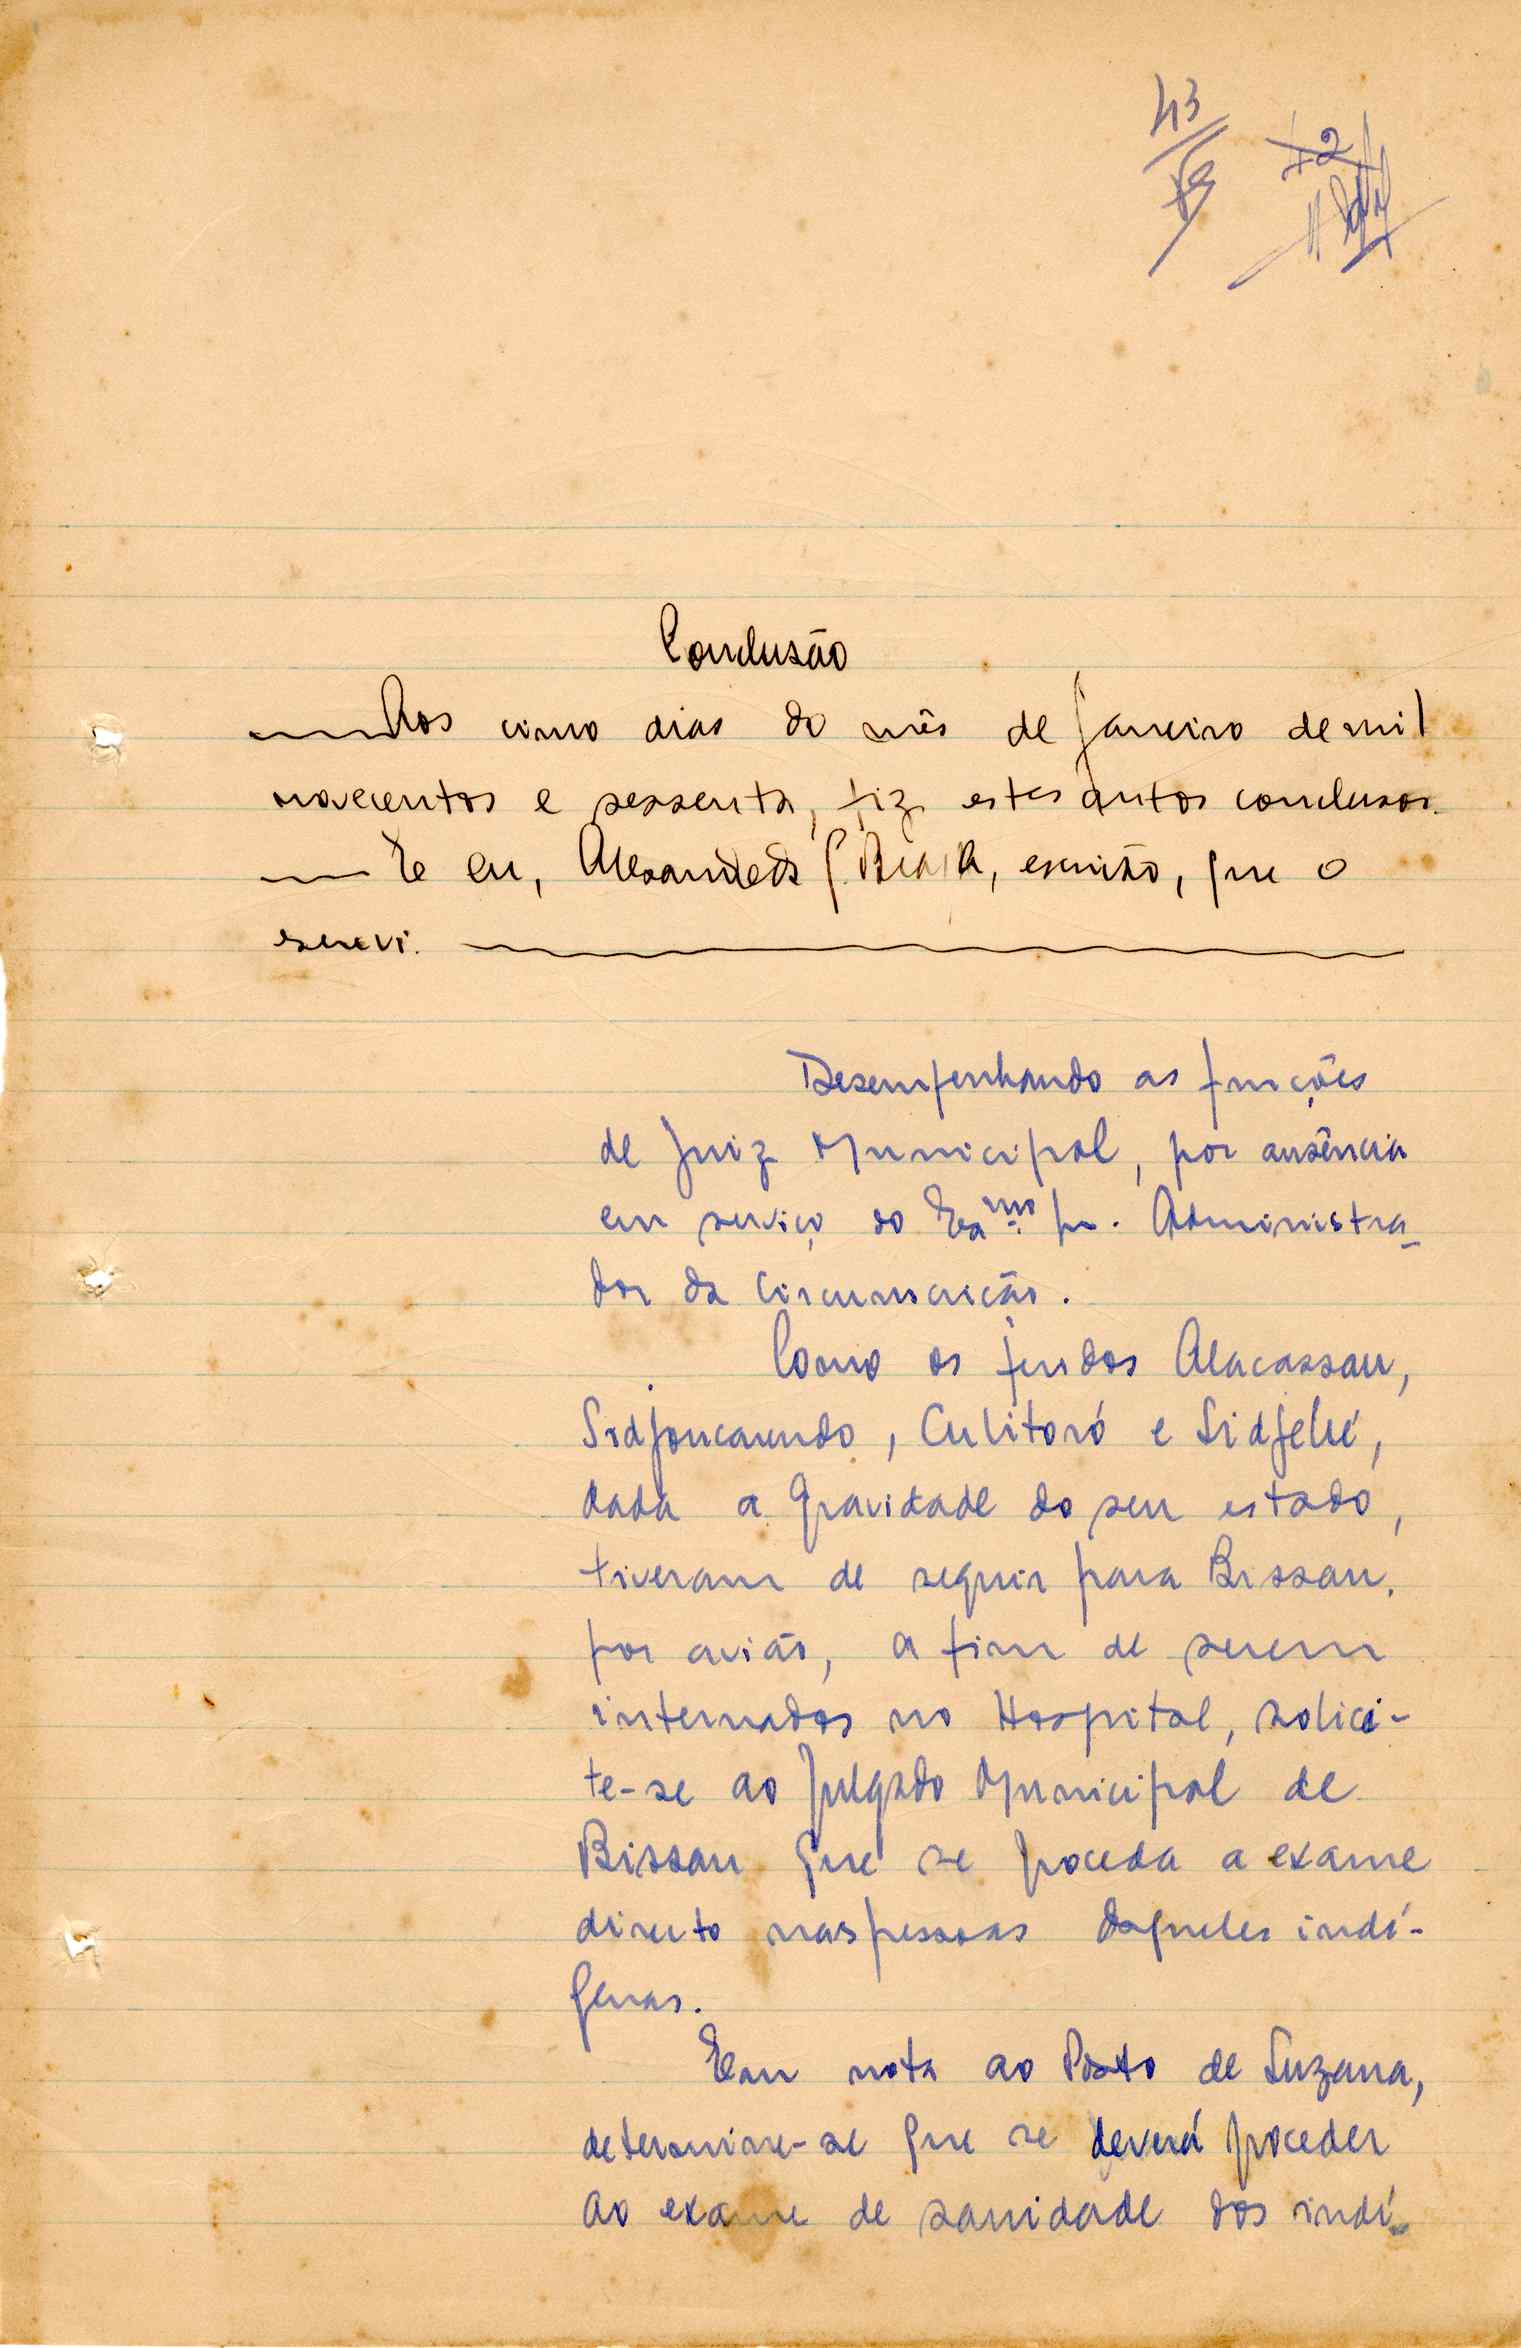 43
42
Conclusão
Aos cinco dias do mês de Janeiro de mil
novecentos e sessenta, fiz estes autos conclusos.
E eu, escrivão, que o
escrevi.
Desempenhando as funções
de Juiz Municipal, por ausência
em serviço do Exmo Sr. Administra-
dor da Circunscrição.
Como os feridos Alacassau,
Sidjoucaundo, Culitoró e Sidjelié,
dada a gravidade do seu estado,
tiveram de seguir para Bissau,
por avião, a fim de serem
internados no Hospital, solici-
te-se ao Julgado Municipal de
Bissau que se proceda a exame
directo nas pessoas daqueles indí-
genas.
Em nota ao Posto de Suzana,
determine-se que se deverá proceder
ao exame de sanidade dos indí-